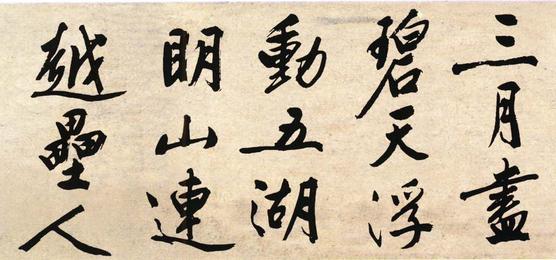 三月盡
碧天浮
動五湖
明山連
越壘人